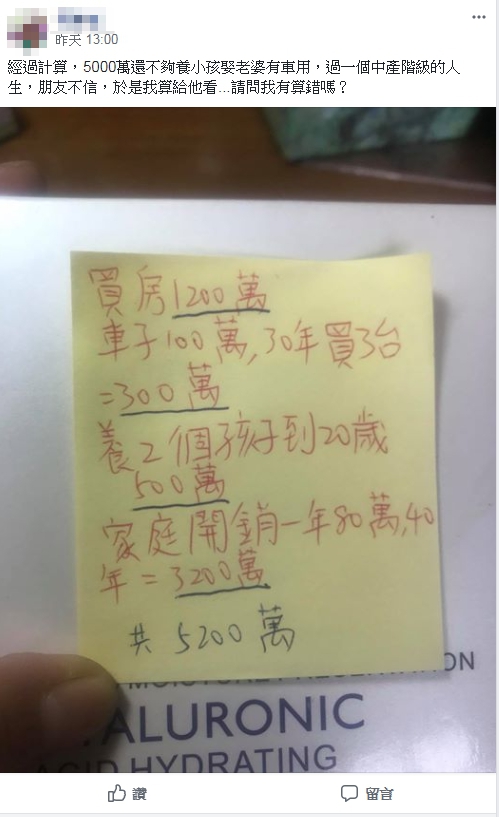 昨天 13:00
經過計算，5000萬還不夠養小孩娶老婆有車用，過一個中產階級的人
生，朋友不信，於是我算給他看...請問我有算錯嗎？
買房1200萬
車子100萬,30年買3台
=300萬
養2個孩子到20歲
500萬
家庭開銷一年80萬,40
年=3200萬
共5200萬
ALURONIC
ACID HYDRATING
讚
留言